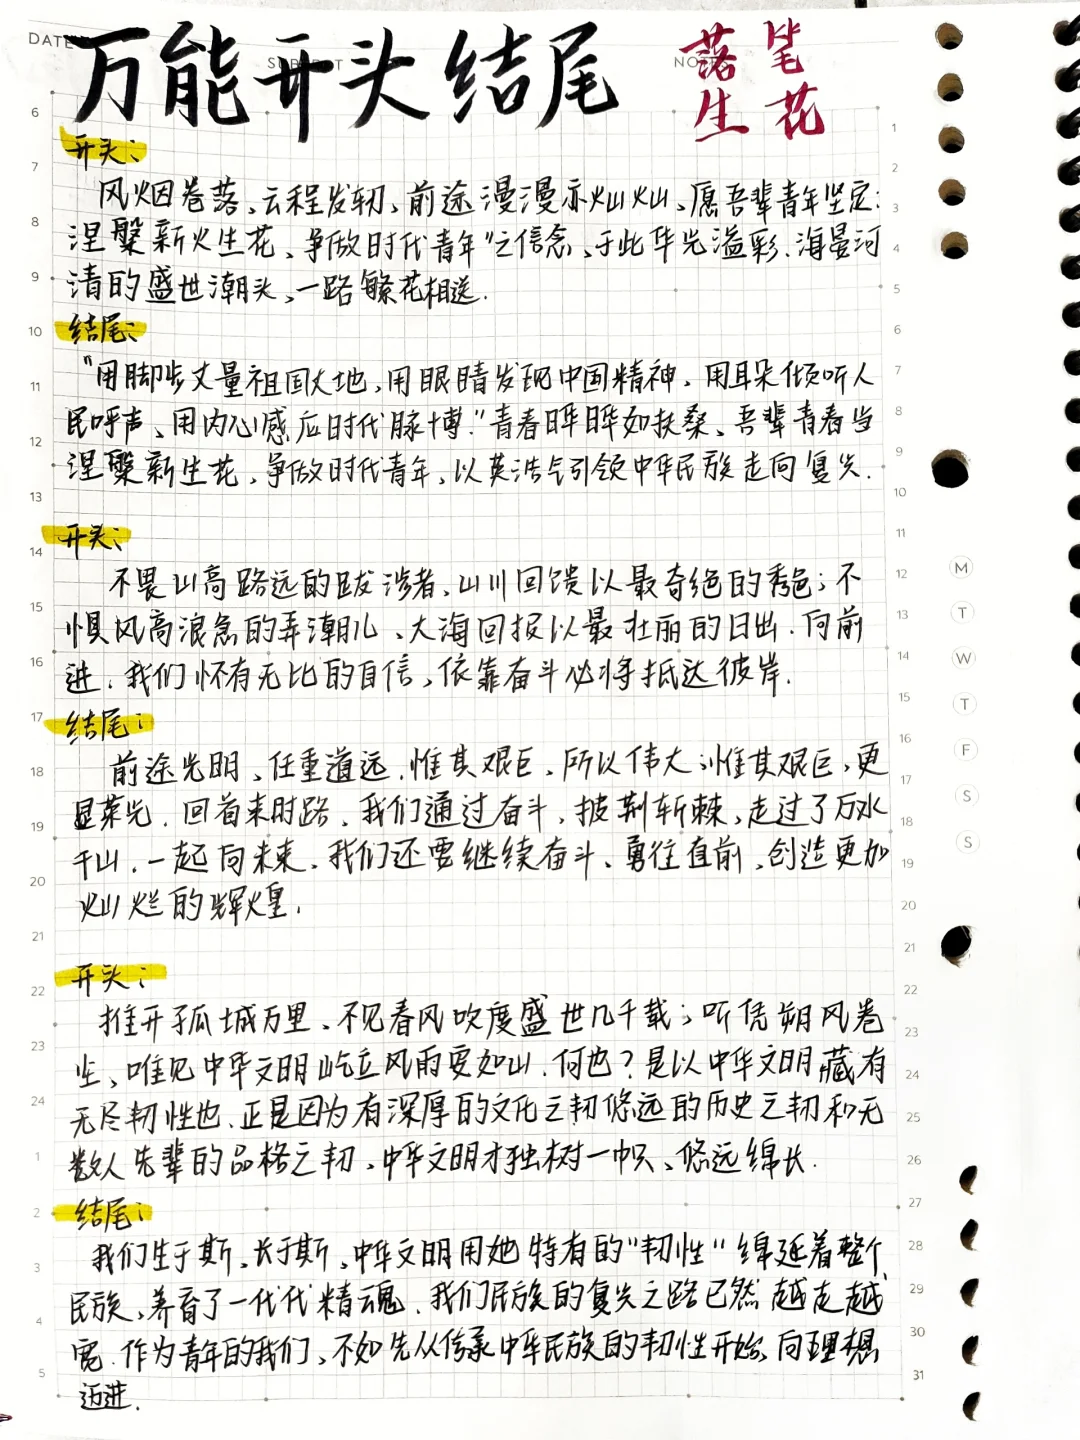 DATE
SUBJECT
NOTE
万能开头结尾
落笔
生花
开头:
风烟卷落、云程发轫、前途漫漫亦灿灿、愿吾辈青年坚定:
涅槃新火生花、争做时代青年"之信念、于此华光溢彩.海晏河
清的盛世潮头、一路繁花相送.
结尾:
"用脚步丈量祖国大地,用眼睛发现中国精神、用耳朵倾听人
民呼声、用内心感应时代脉博."青春晔晔如扶桑、吾辈青春当
涅槃新生花,争做时代青年,以英浩气引领中华民族走向复兴.
开头:
不畏山高路远的跋涉者、山川回馈以最奇绝的秀色;不
惧风高浪急的弄潮儿、大海回报以最壮丽的日出.向前
进.我们怀有无比的自信、依靠奋斗必将抵达彼岸.
结尾:
前途光明、任重道远.惟其艰巨、所以伟大;惟其艰巨,更
显荣光.回首来时路、我们通过奋斗,披荆斩棘、走过了万水
千山.一起向未来、我们还需继续奋斗、勇往直前、创造更加
灿烂的辉煌.
开头:
推开孤城万里、不见春风吹度盛世几千载;听凭朔风卷
尘、唯见中华文明屹立风雨耍如山.何也?是以中华文明藏有
无尽韧性也.正是因为有深厚的文化之韧悠远的历史之韧和无
数人先辈的品格之韧、中华文明才独树一帜、悠远绵长.
结尾:
我们生于斯、长于斯、中华文明用她特有的"韧性"绵延着整个
民族、养育了一代代精魂.我们民族的复兴之路已然越走越
宽.作为青年的我们、不如先从传承中华民族的韧性开始、向理想
迈进.
6
7
8
9
10
11
12
13
14
15
16
17
18
19
20
21
22
23
24
1
2
3
4
5
1
2
3
4
5
6
7
8
9
10
11
12
13
14
15
16
17
18
19
20
21
22
23
24
25
26
27
28
29
30
31
M
T
W
T
F
S
S